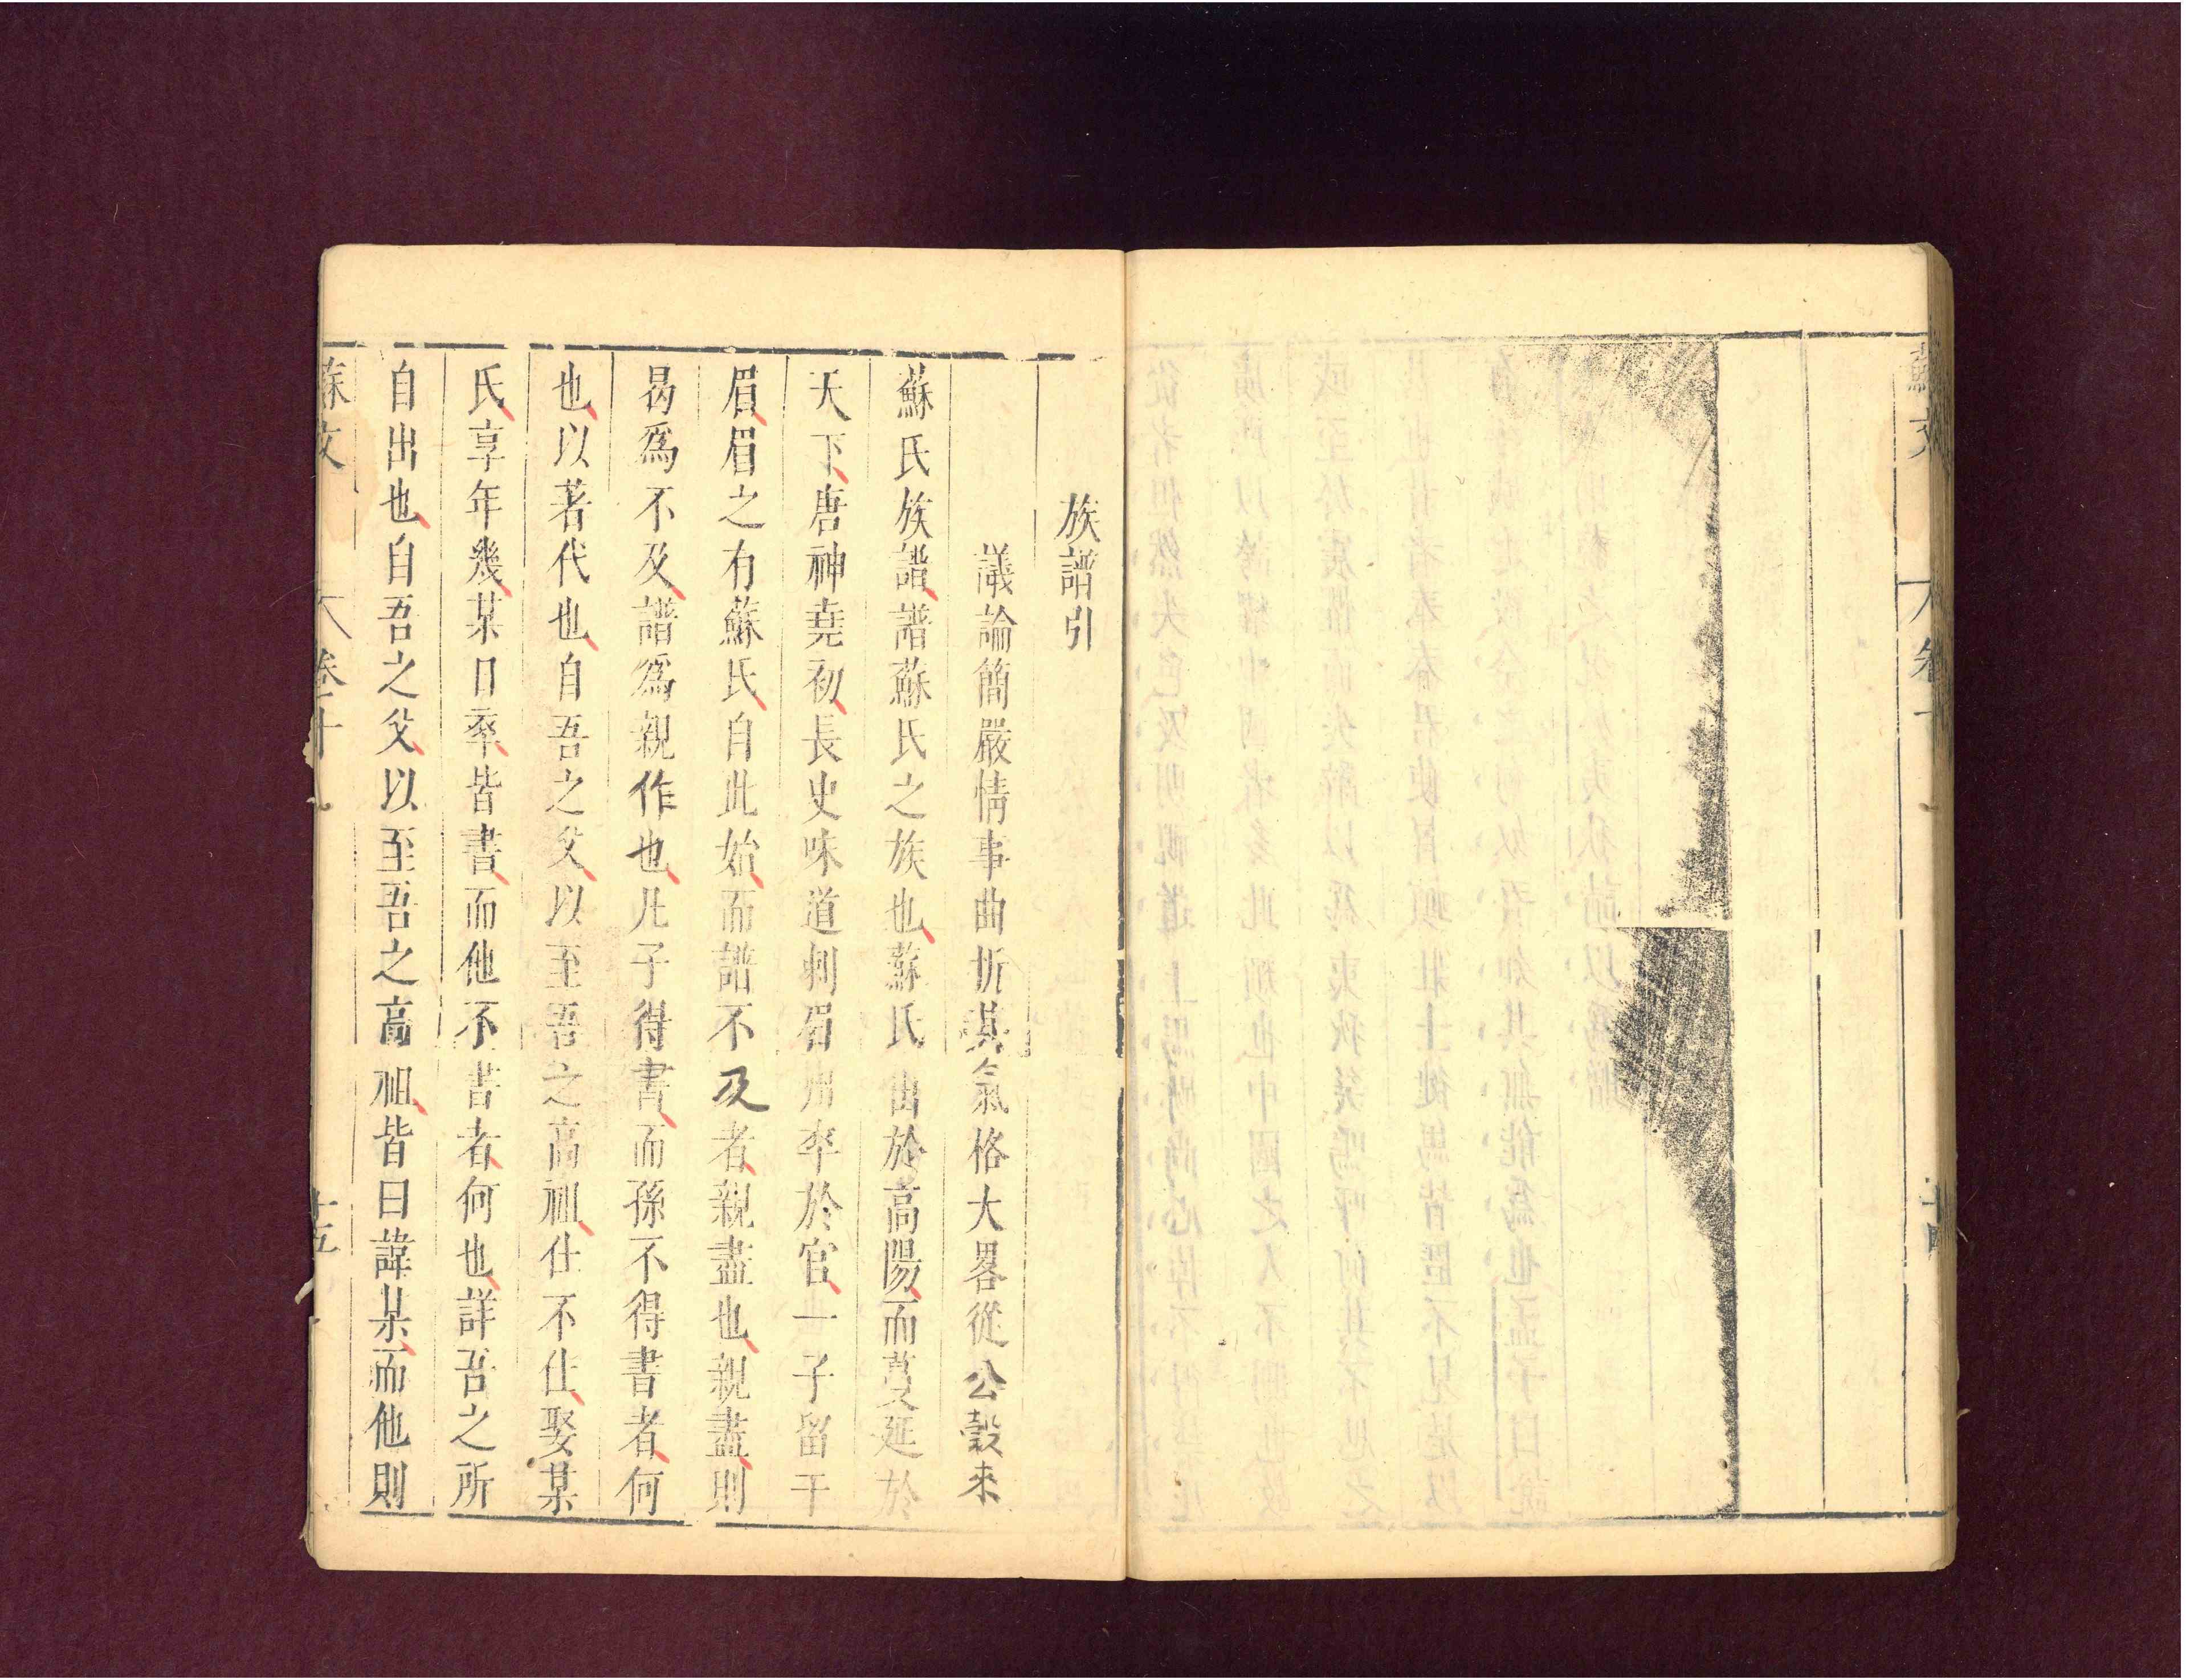 蘇文
卷十
十四
族譜引
議論簡嚴情事曲折其氣格大畧從公穀來
蘇氏族譜譜蘇氏之族也蘇氏出於高陽而蔓延於
天下唐神堯初長史味道刺眉州卒於官一子留于
眉眉之有蘇氏自此始而譜不及者親盡也親盡則
曷爲不及譜爲親作也凡子得書而孫不得書者何
也以著代也自吾之父以至吾之高祖仕不仕娶某
氏享年幾某日卒皆書而他不書者何也詳吾之所
自出也自吾之父以至吾之高祖皆曰諱某而他則
蘇文
卷十
十五